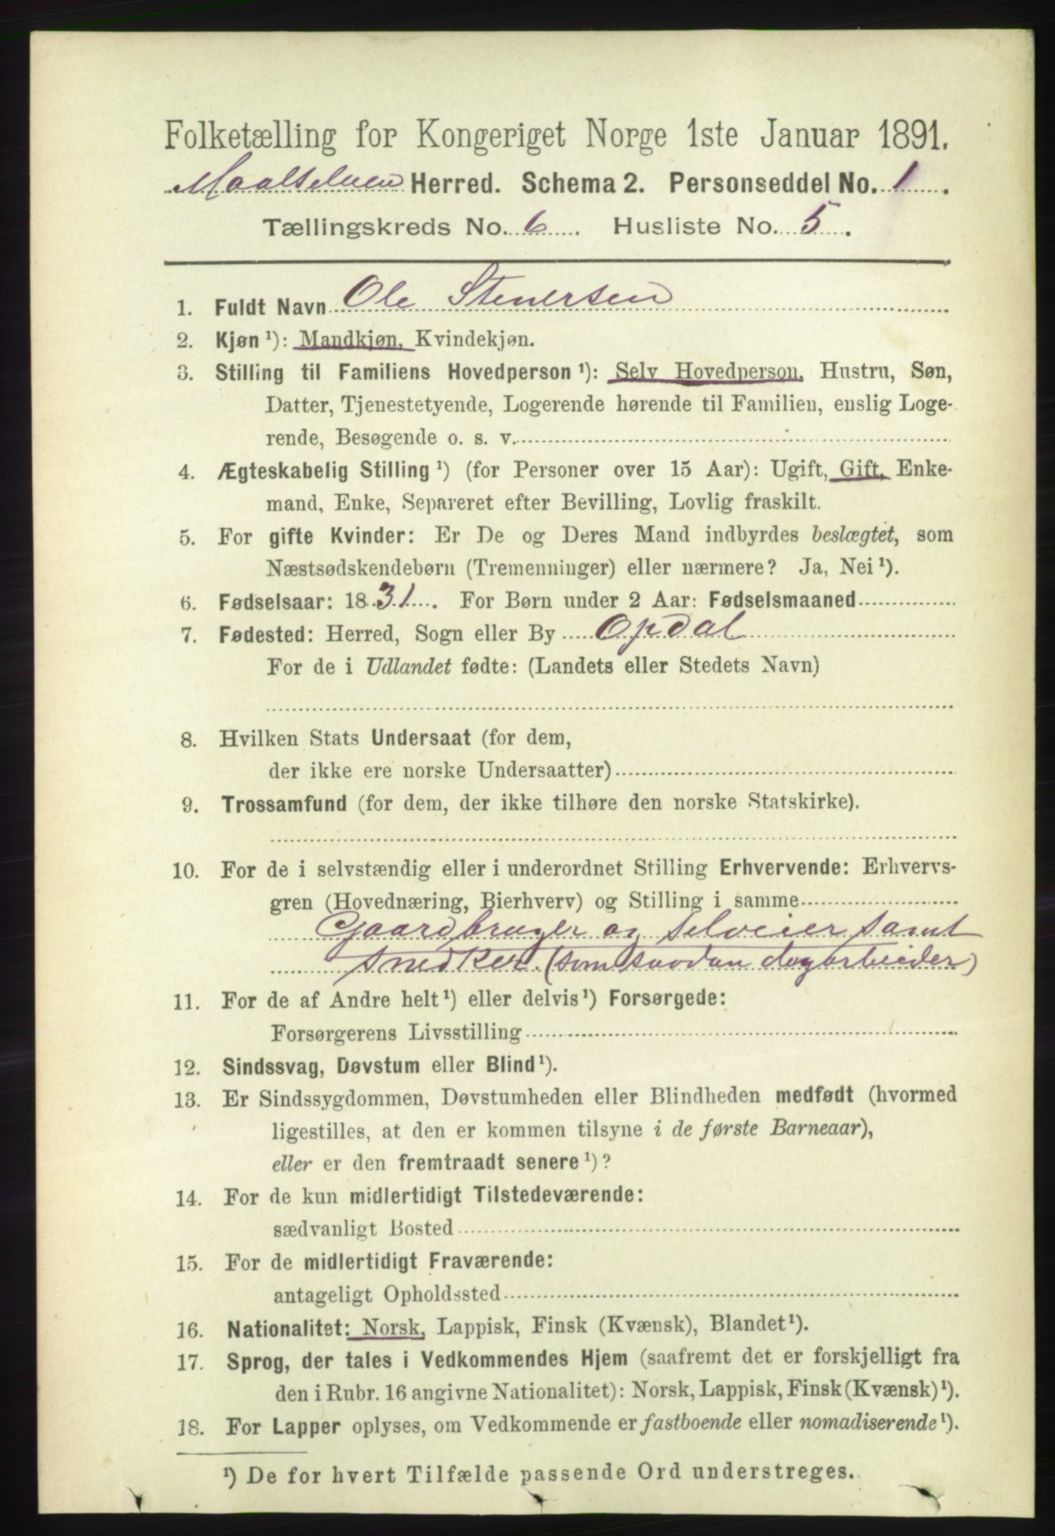 Folketælling for Kongeriget Norge 1ste Januar 1891.
Maalselven Herred. Schema 2. Personseddel No. 1.
Tællingskreds No. 6. Husliste No. 5.
1. Fuldt Navn Ole Stenersen
2. Kjøn ¹): Mandkjøn, Kvindekjøn.
3. Stilling til Familiens Hovedperson ¹): Selv Hovedperson, Hustru, Søn,
Datter, Tjenestetyende, Logerende hørende til Familien, enslig Loge-
rende, Besøgende o. s. v.
4. Ægteskabelig Stilling ¹) (for Personer over 15 Aar): Ugift, Gift, Enke-
mand, Enke, Separeret efter Bevilling, Lovlig fraskilt.
5. For gifte Kvinder: Er De og Deres Mand indbyrdes beslægtet, som
Næstsødskendebørn (Tremenninger) eller nærmere? Ja, Nei ¹).
6. Fødselsaar: 1831. For Børn under 2 Aar: Fødselsmaaned
7. Fødested: Herred, Sogn eller By Opdal
For de i Udlandet fødte: (Landets eller Stedets Navn)
8. Hvilken Stats Undersaat (for dem,
der ikke ere norske Undersaatter)
9. Trossamfund (for dem, der ikke tilhøre den norske Statskirke).
10. For de i selvstændig eller i underordnet Stilling Erhvervende: Erhvervs-
gren (Hovednæring, Bierhverv) og Stilling i samme
Gaardbruger og Selveier samt
Snedker. (som saadan dagarbeider)
11. For de af Andre helt ¹) eller delvis ¹) Forsørgede:
Forsørgerens Livsstilling
12. Sindssvag, Døvstum eller Blind ¹).
13. Er Sindssygdommen, Døvstumheden eller Blindheden medfødt (hvormed
ligestilles, at den er kommen tilsyne i de første Barneaar),
eller er den fremtraadt senere ¹)?
14. For de kun midlertidigt Tilstedeværende:
sædvanligt Bosted
15. For de midlertidigt Fraværende:
antageligt Opholdssted
16. Nationalitet: Norsk, Lappisk, Finsk (Kvænsk), Blandet ¹).
17. Sprog, der tales i Vedkommendes Hjem (saafremt det er forskjelligt fra
den i Rubr. 16 angivne Nationalitet): Norsk, Lappisk, Finsk (Kvænsk) ¹).
18. For Lapper oplyses, om Vedkommende er fastboende eller nomadiserende ¹).
¹) De for hvert Tilfælde passende Ord understreges.